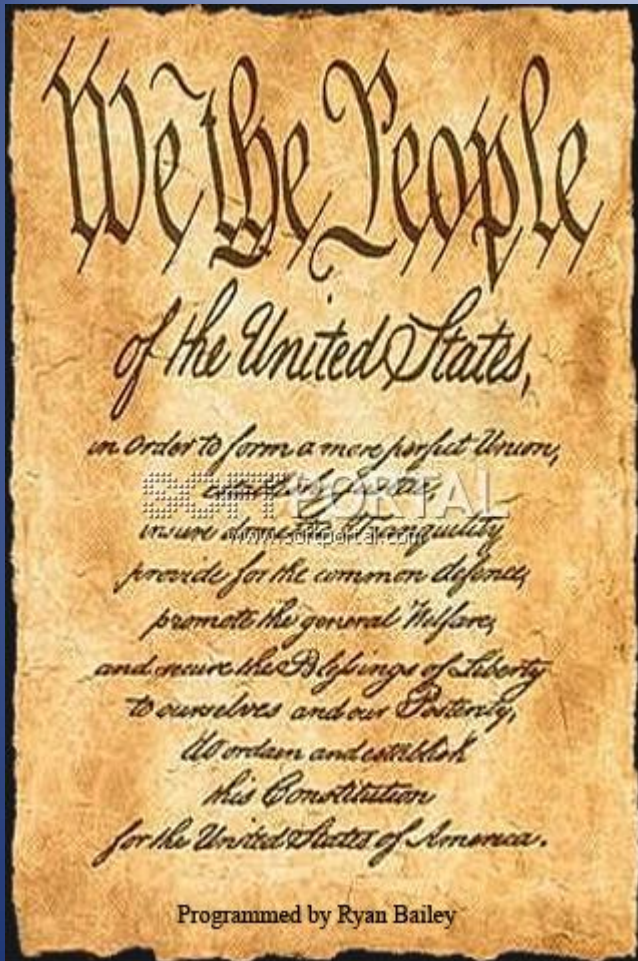 We the People
of the United States,
in Order to form a more perfect Union,
establish Justice,
SOFTPORTAL
insure domestic Tranquility
www.softportal.com
provide for the common defence,
promote the general Welfare,
and secure the Blessings of Liberty
to ourselves and our Posterity,
do ordain and establish
this Constitution
for the United States of America.
Programmed by Ryan Bailey